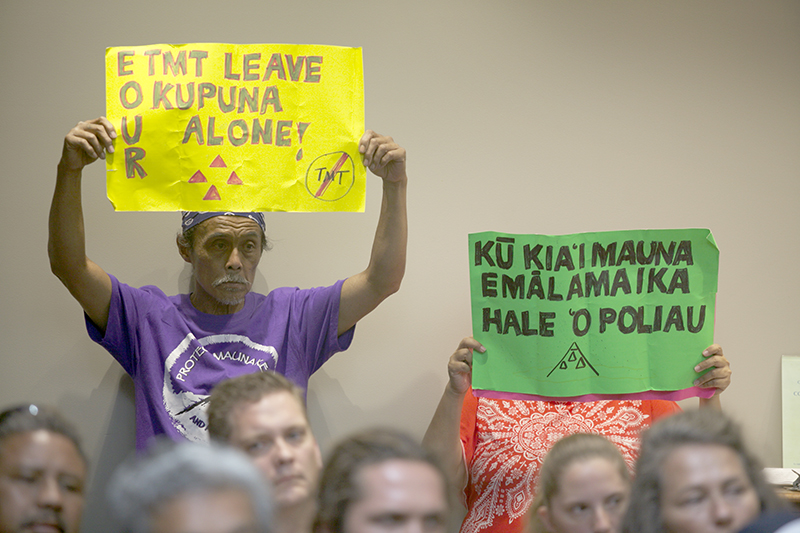 E TMT LEAVE
O KUPUNA
U ALONE!
R
TMT
KŪ KIAʻI MAUNA
E MĀLAMA I KA
HALE ʻO POLIAU
PROTE MAUNA KE
AND